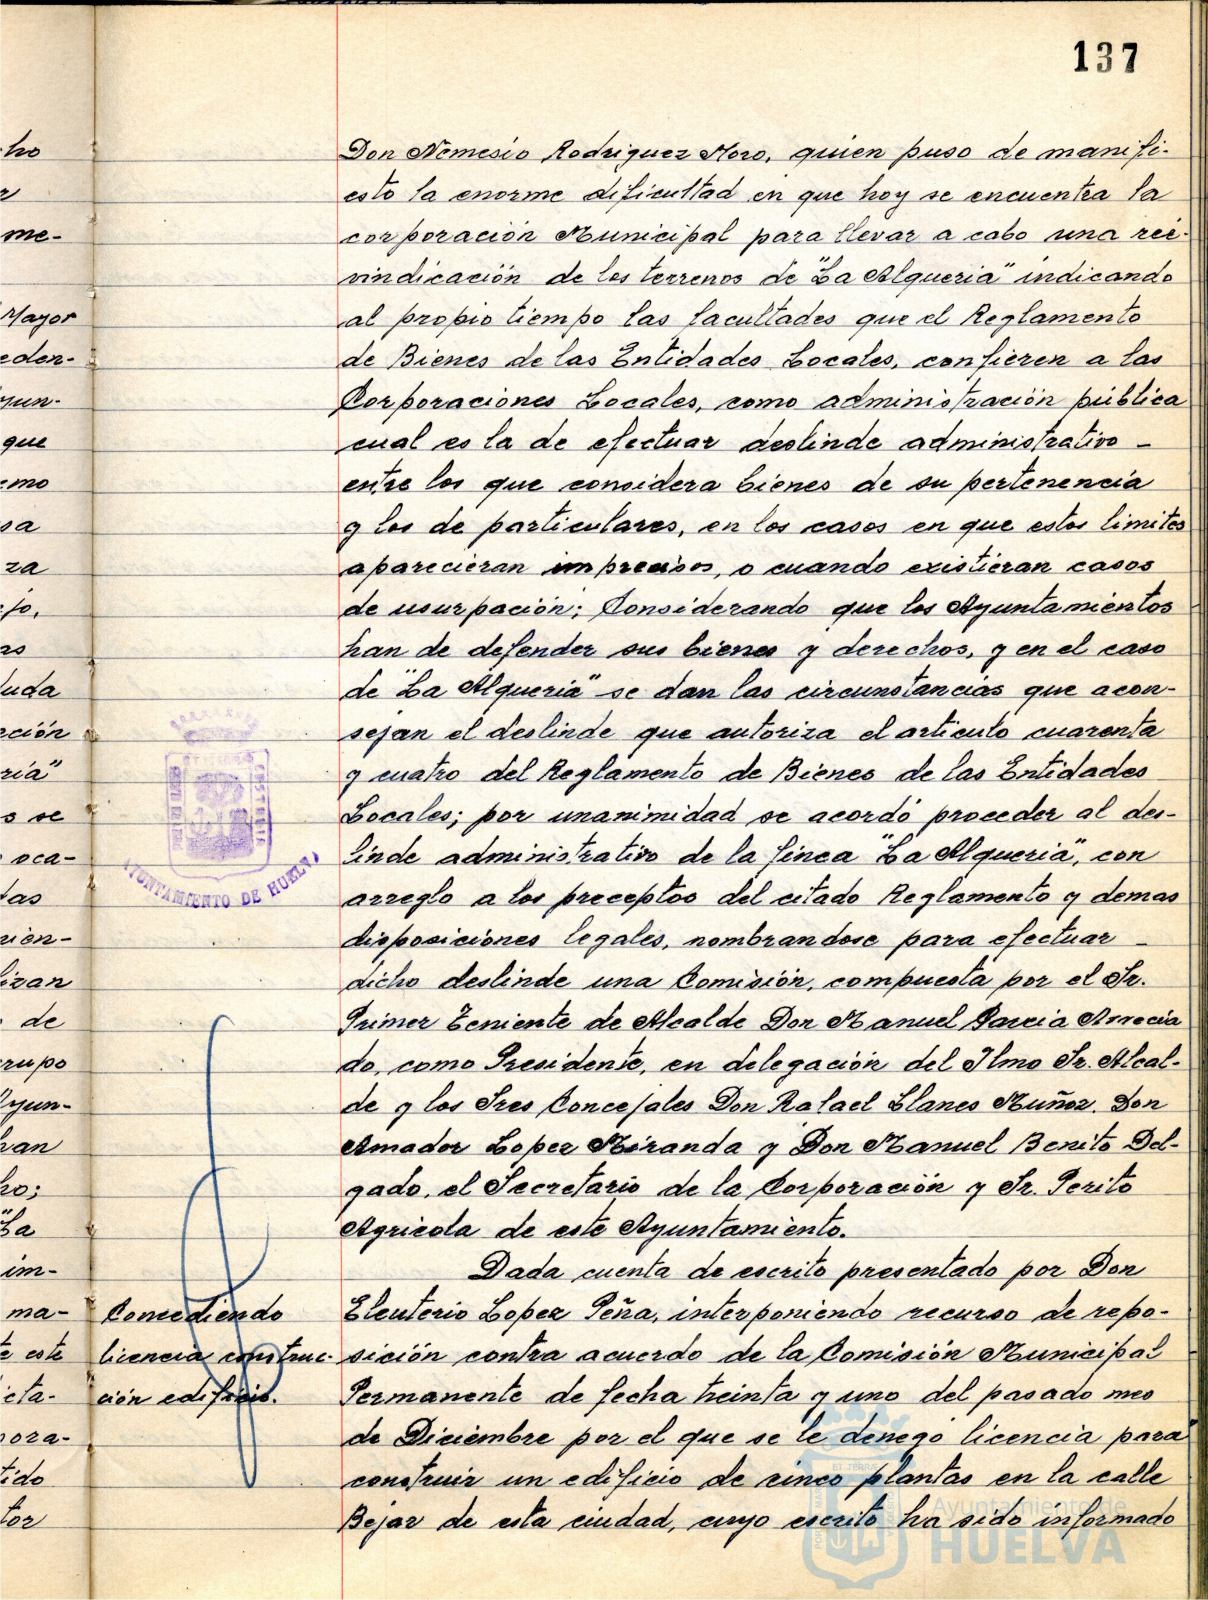 137
Don Nemesio Rodriguez Moro, quien puso de manifi-
esto la enorme dificultad en que hoy se encuentra la
corporación Municipal para llevar a cabo una rei-
vindicación de los terrenos de "La Alqueria" indicando
al propio tiempo las facultades que el Reglamento
de Bienes de las Entidades Locales, confieren a las
Corporaciones Locales, como administración pública
cual es la de efectuar deslinde administrativo -
entre los que considera bienes de su pertenencia
y los de particulares, en los casos en que estos limites
aparecieran imprecisos, o cuando existieran casos
de usurpación; Considerando que los Ayuntamientos
han de defender sus bienes y derechos, y en el caso
de "La Alqueria" se dan las circunstancias que acon-
sejan el deslinde que autoriza el articulo cuarenta
y cuatro del Reglamento de Bienes de las Entidades
Locales; por unanimidad se acordó proceder al des-
linde administrativo de la finca "La Alqueria", con
arreglo a los preceptos del citado Reglamento y demas
disposiciones legales, nombrandose para efectuar -
dicho deslinde una Comisión, compuesta por el Sr.
Primer Teniente de Alcalde Don Manuel Garcia Arrecia
do, como Presidente, en delegación del Ilmo Sr. Alcal-
de y los Sres Concejales Don Rafael Llanes Muñoz, Don
Amador Lopez Miranda y Don Manuel Benito Del-
gado, el Secretario de la Corporación y Sr. Perito
Agricola de este Ayuntamiento.
Dada cuenta de escrito presentado por Don
Eleuterio Lopez Peña, interponiendo recurso de repo-
sición contra acuerdo de la Comisión Municipal
Permanente de fecha treinta y uno del pasado mes
de Diciembre por el que se le denegó licencia para
construir un edificio de cinco plantas en la calle
Bejar de esta ciudad, cuyo escrito ha sido informado
Concediendo
licencia construc-
ción edificio.
AYUNTAMIENTO DE HUELVA
cho
me-
Mayor
eden-
yun-
que
emo
sa
za
ejo,
as
duda
ección
ria"
s se
oca-
das
nien-
lizan
de
rupo
Ayun-
han
ho;
"La
im-
ma-
te este
icta-
pora-
tido
tor
Ayuntamiento de
HUELVA